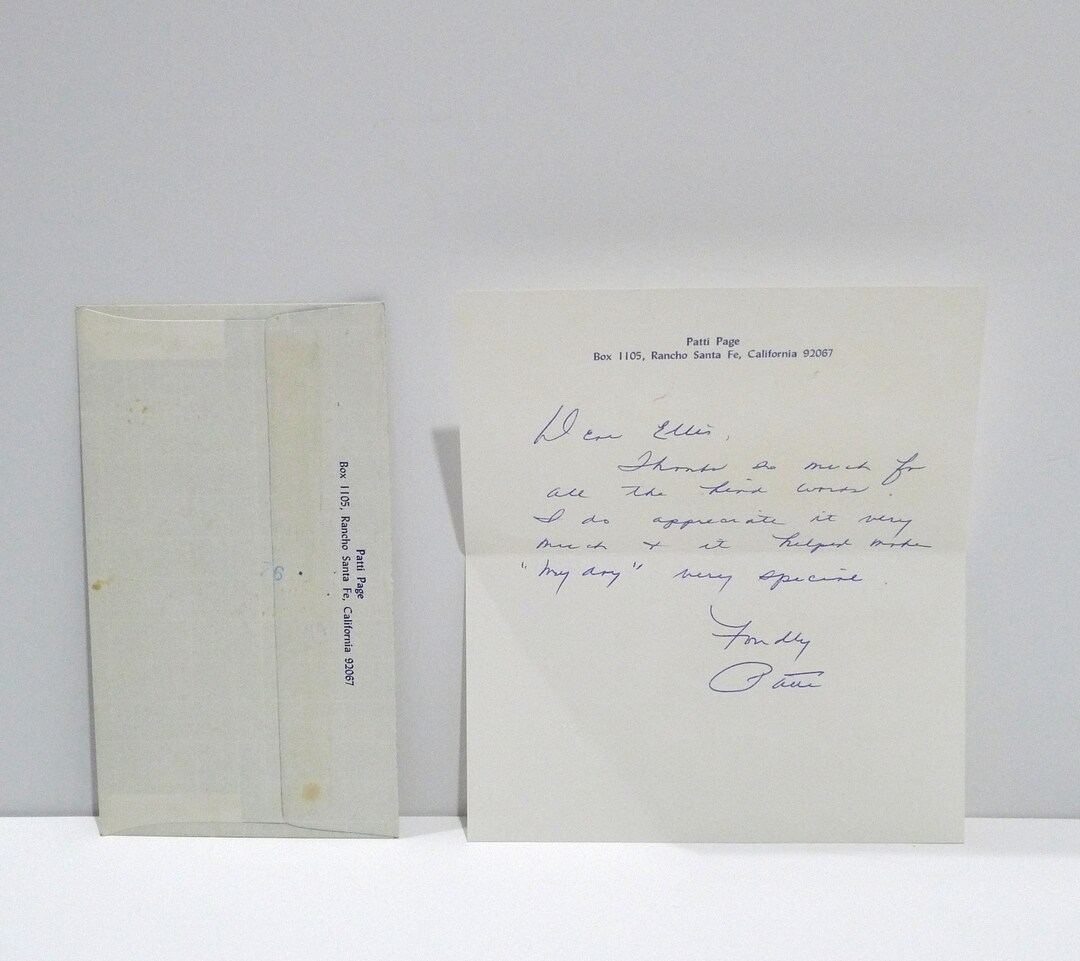 Patti Page
Box 1105, Rancho Santa Fe, California 92067
76
Patti Page
Box 1105, Rancho Santa Fe, California 92067
Dear Ellis,
Thanks so much for
all the kind words.
I do appreciate it very
much & it helped make
"my day" very special.
Fondly
Patti